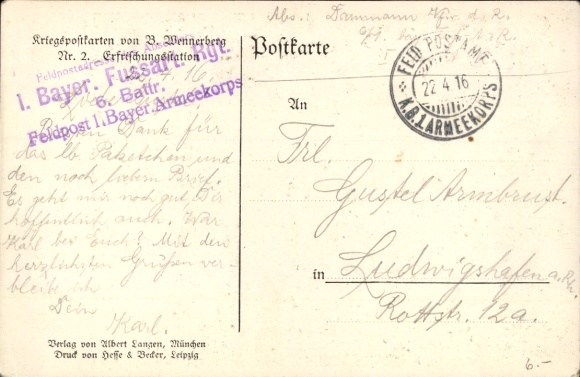 Kriegspostkarten von B. Wennerberg
Nr. 2. Erfrischungsstation
1. Bayer. Fussart. Rgt.
6. Battr.
Feldpost 1. Bayer. Armeekorps
4. 16.
Dank für
das lb. Paketchen und
den noch liebern Brief.
Es geht mir noch gut, Dir
hoffentlich auch. War
Karl bei Euch? Mit den
herzlichsten Grüßen ver-
bleibe ich
Dein
Karl.
Verlag von Albert Langen, München
Druck von Hesse & Becker, Leipzig
Abs: Dammann Vfw. d. R.
Postkarte
FELDPOSTAMT
22.4.16
K.B.1.ARMEEKORPS
An
Frl.
Gustel Armbrust.
in Ludwigshafen a. Rh.
Rottstr. 12a.
6.-